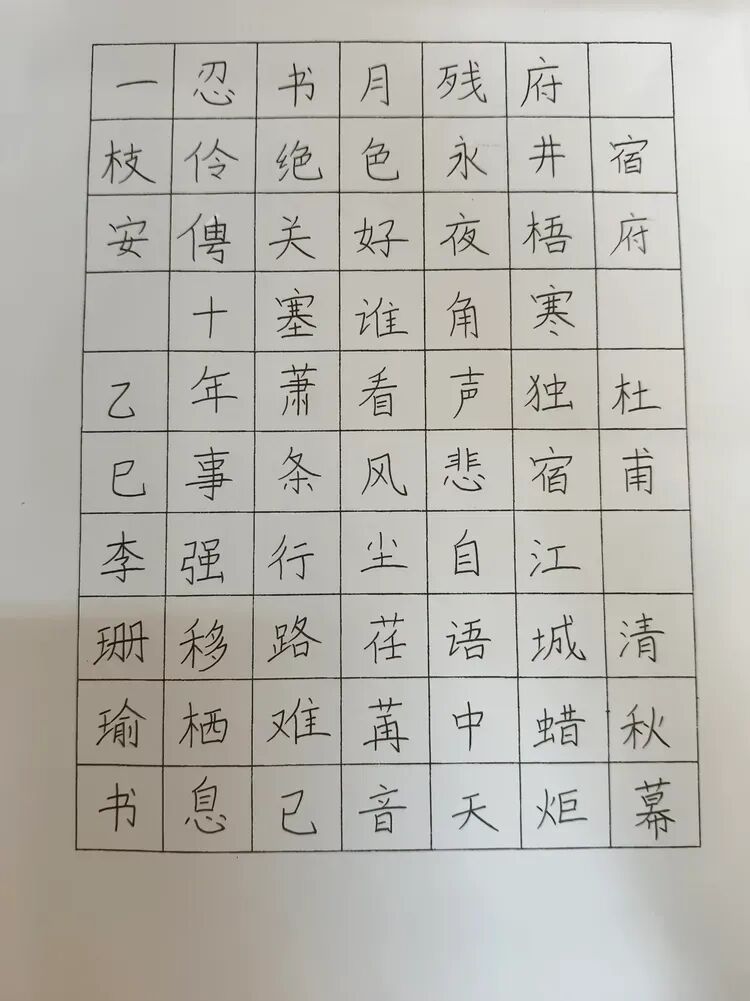 宿府 杜甫 清秋幕
府井梧寒独宿江城蜡炬
残永夜角声悲自语中天
月色好谁看风尘荏苒音
书绝关塞萧条行路难已
忍伶俜十年事强移栖息
一枝安 乙巳李珊瑜书